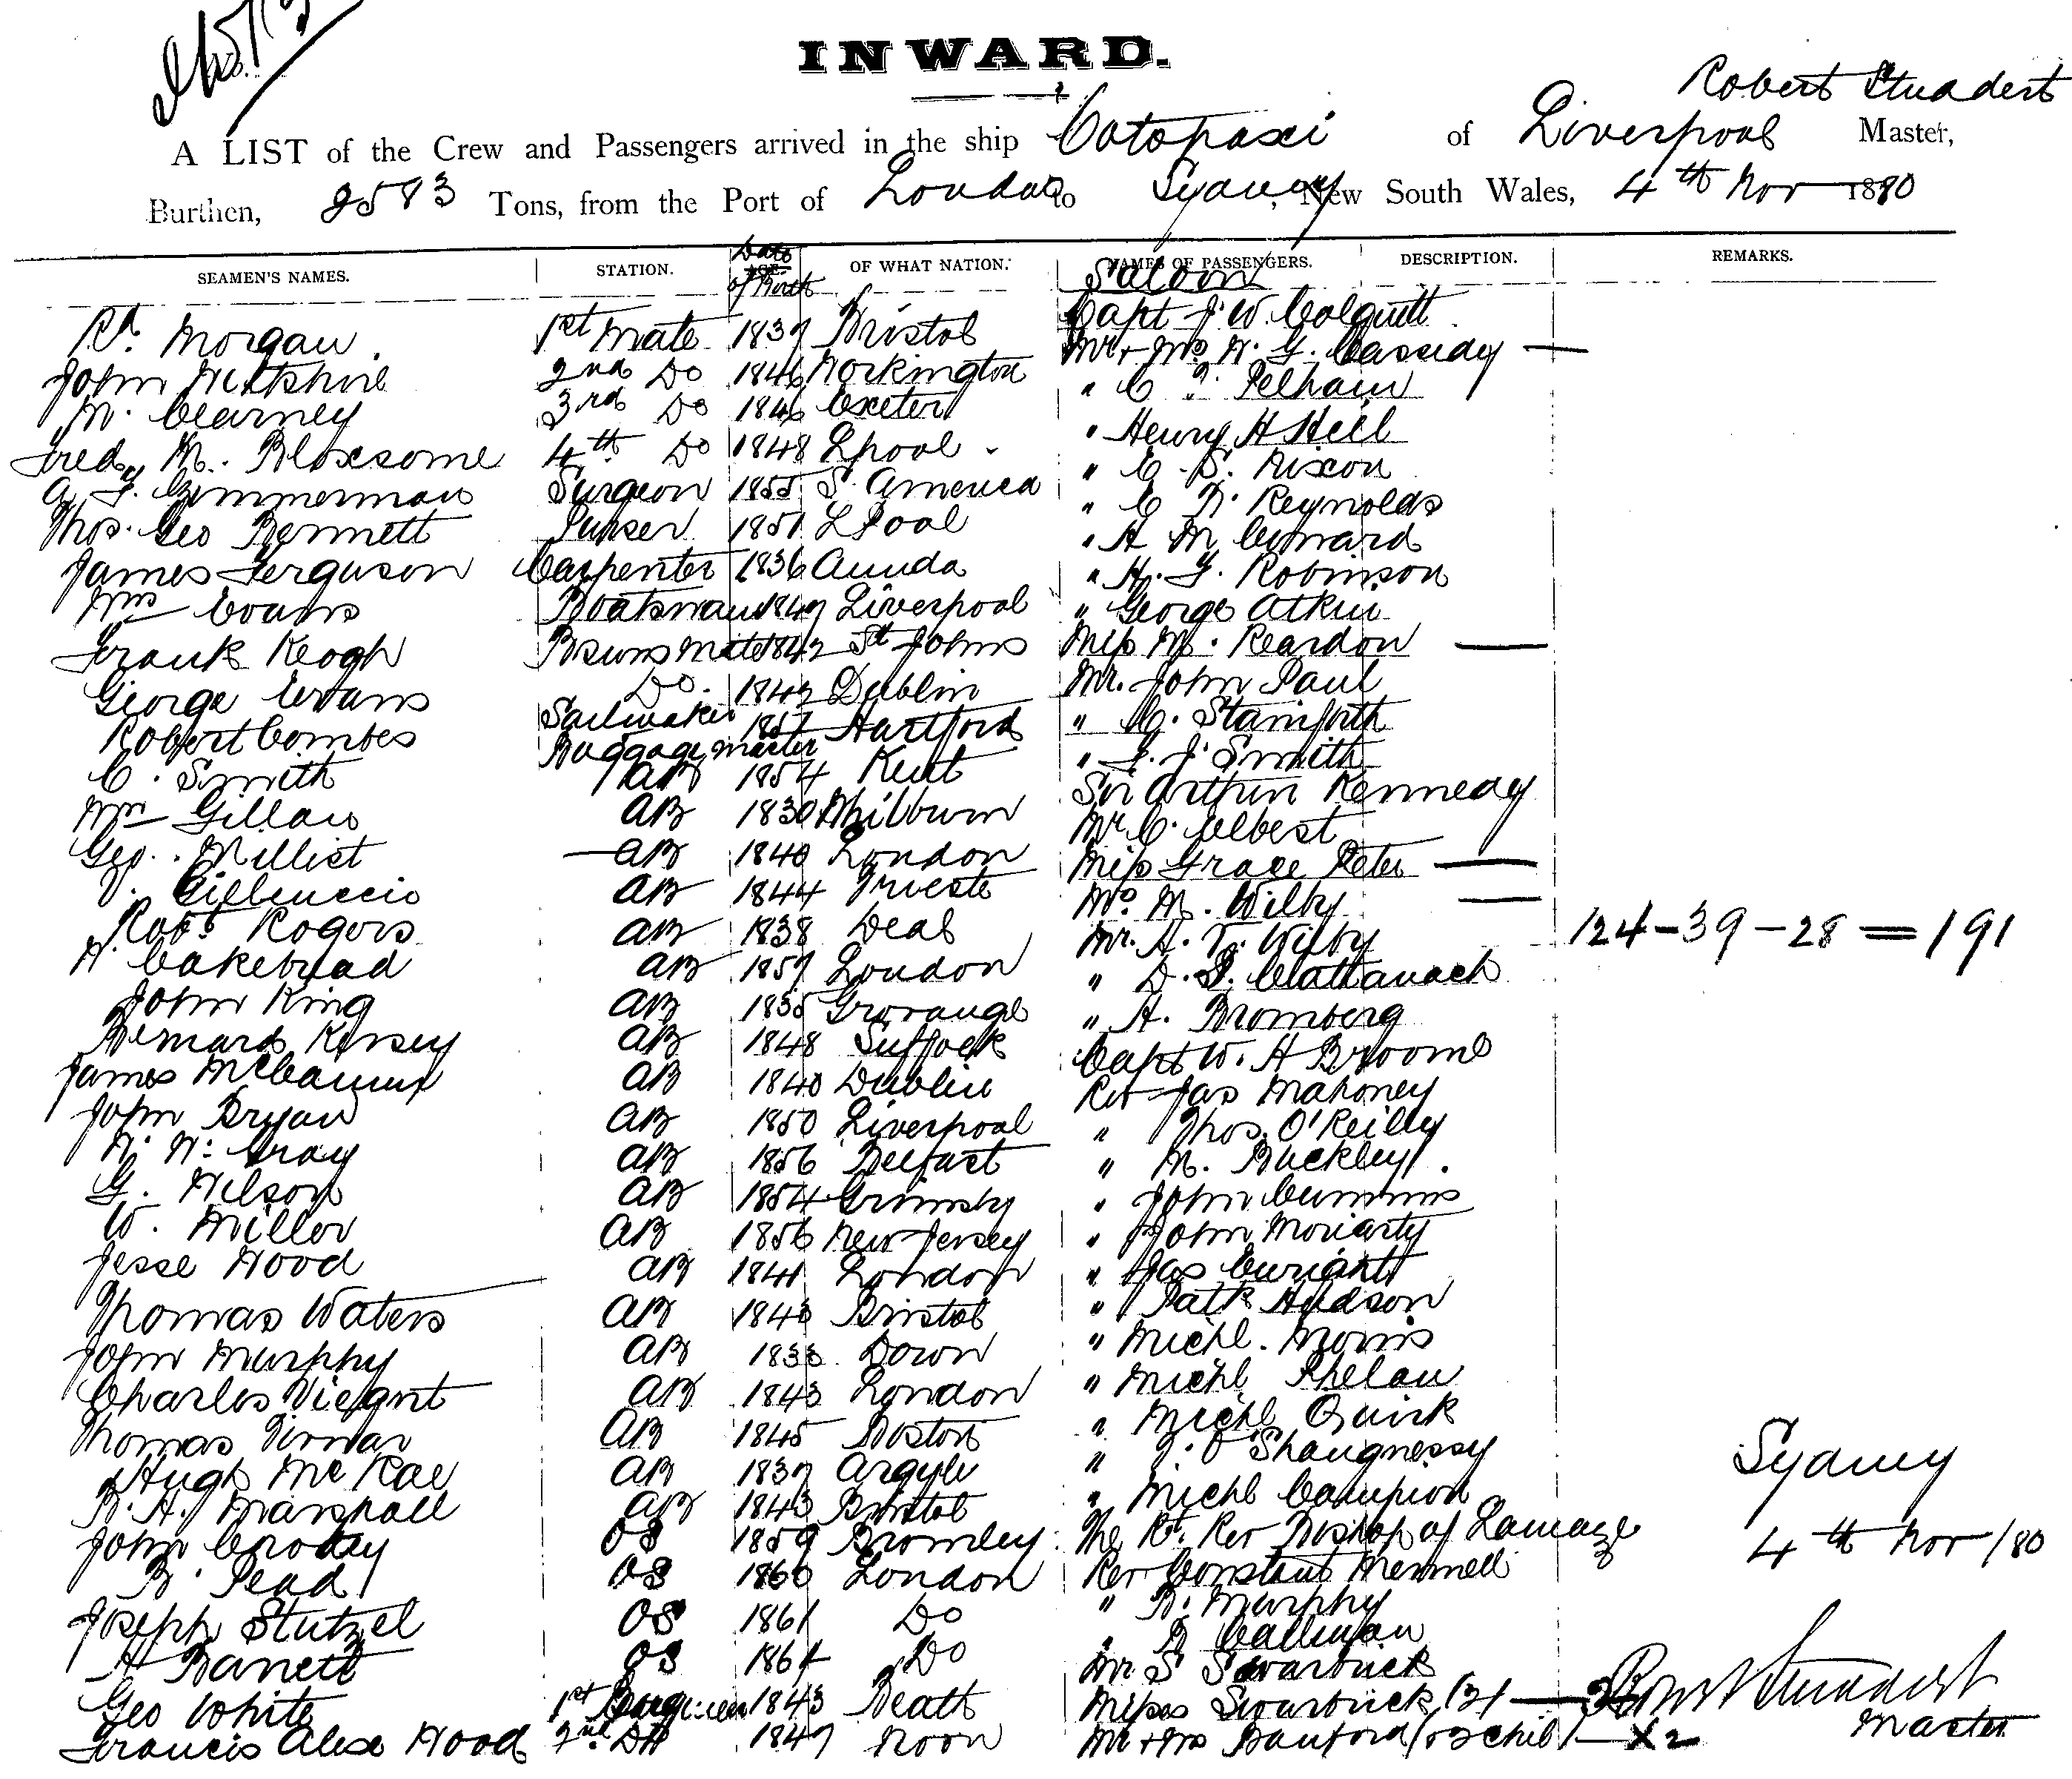 INWARD.
Robert Studdert
A LIST of the Crew and Passengers arrived in the ship Cotopaxi of Liverpool Master,
Burthen, 2583 Tons, from the Port of London to Sydney, New South Wales, 4th Nov 1880
SEAMEN'S NAMES. STATION. Date of Birth OF WHAT NATION. NAMES OF PASSENGERS. DESCRIPTION. REMARKS.
Saloon
Rd. Morgan 1st Mate 1837 Bristol Capt J. W. Colquitt
John Wiltshire 2nd Do 1846 Workington Mr & Mrs W. G. Cassidy —
M. Cearney 3rd Do 1846 Exeter " C. T. Pelham
Fredy M. Bloxsome 4th Do 1848 Lpool " Henry H Hill
A. F. Zimmerman Surgeon 1855 S. America " C. S. Nixon
Thos. Geo Bennett Purser 1851 LPool " C R. Reynolds
James Ferguson Carpenter 1836 " H M Conard
Wm Evans Boatswain 1847 Liverpool " H. F. Robinson
Frank Keogh Bsuns Mate 1842 St Johns " George Atkin
George Evans Do. 1847 Dublin Miss M. Reardon —
Robert Combes Sailmaker 1857 Hartford Mr. John Paul
C. Smith Baggage master AB 1854 Kent " C. Staniforth
Wm Gillan AB 1830 Milburn " G. J. Smith
Geo. Millist AB 1840 London Sir Arthur Kennedy
V. AB 1844 Trieste Mr C. Elbest
Robt Rogers AB 1838 Deal Miss Grace Peter —
H Cakebread AB 1857 London Mrs. M. Wilby —
John King AB 1835 Mr. A. T. Wilby 124 - 39 - 28 = 191
Bernard Kersey AB 1848 Suffock " D. S. Cattanach
James AB 1840 Dublin " A. Bromberg
John Bryan AB 1850 Liverpool Capt W. H Broome
W. W. Gray AB 1856 Belfast Rev Jas Mahoney
G. Wilson AB 1854 Grimsby " Thos. O'Reilly
W. Miller AB 1856 New Jersey " M. Buckley
Jesse Wood AB 1841 London " John Cummins
Thomas Waters AB 1843 Bristol " John Moriarty
John Murphy AB 1833 Down " Jas
Charles AB 1843 London " Patk Hudson
Thomas AB 1845 Boston " Michl. Morris
Hugh McRae AB 1837 Argyle " Michl Phelan
R. H. Marshall AB 1843 Bristol " Michl Quirk
John Crodey OS 1859 Bromley " T. O'Shaugnessy
B. Pead OS 1860 London " Michl Campion
Joseph Stutzel OS 1861 Do The Rt. Rev Bishop of
A Barrett OS 1861 Do Rev Constant
Geo White 1st 1843 Neath " B. Murphy
Francis Alex Wood 2nd Do 1847 " B Callinan
Mr S Swarbrick
Misses Swarbrick (3) —
Mr & Mrs Banford (& 3 chil) — X 2
Sydney
4th Nov /80
Robert Studdert
Master